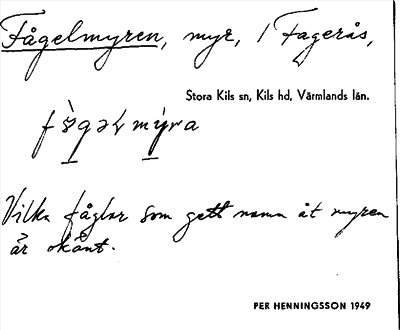 Fågelmyren, myr, i Fagerås,
Stora Kils sn, Kils hd, Värmlands län.
Vilka fåglar som gett namn åt myren
är okänt.
PER HENNINGSSON 1949